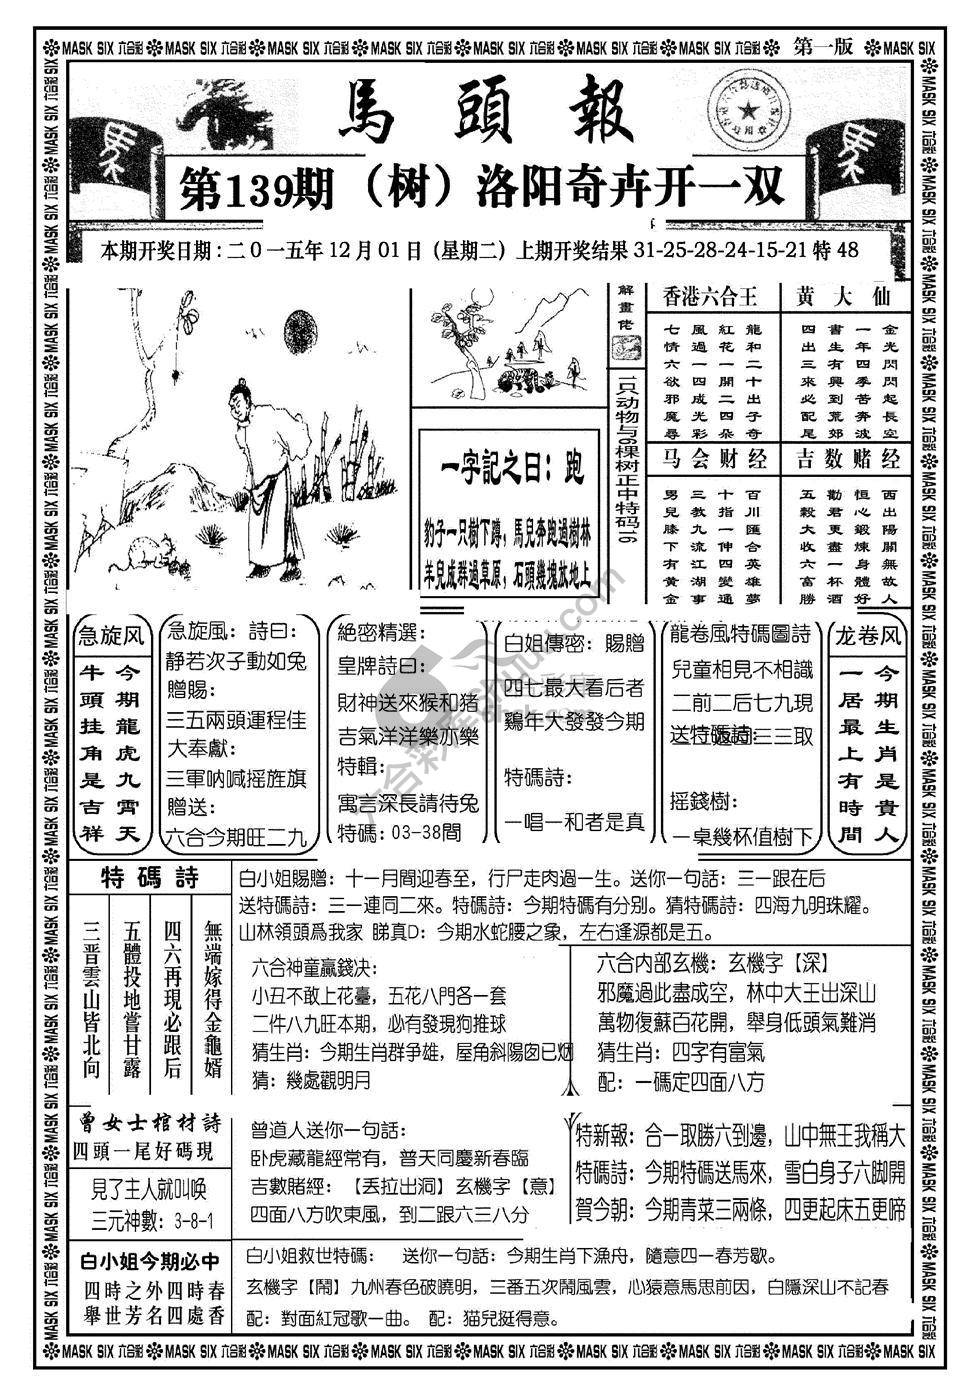 MASK SIX 六合彩 MASK SIX 六合彩 MASK SIX 六合彩 MASK SIX 六合彩 MASK SIX 六合彩 MASK SIX 六合彩 MASK SIX 六合彩 第一版 MASK SIX
馬頭報
第139期（树）洛阳奇卉开一双
本期开奖日期：二0一五年12月01日（星期二）上期开奖结果31-25-28-24-15-21特48
解畫佬
1只动物与6棵树正中特码16
一字記之曰：跑
豹子一只樹下蹲，馬兒奔跑過樹林
羊兒成群過草原，石頭幾塊放地上
香港六合王
龍和二十出子奇
紅花一開二四朵
風過一四成光彩
七情六欲邪魔尋
黄大仙
金光閃閃起長空
一年四季苦奔波
書生有興到荒郊
四出三來必配尾
马会财经
百川匯合英雄夢
十指一伸四變通
三教九流江湖事
男兒膝下有黄金
吉数赌经
西出陽關無故人
恒心鍛煉身體好
勸君更盡一杯酒
五穀大收六富勝
急旋风
今期龍虎九霄天
牛頭挂角是吉祥
急旋風：詩曰：
静若次子動如兔
贈賜：
三五兩頭運程佳
大奉獻：
三軍吶喊摇旌旗
贈送：
六合今期旺二九
絶密精選：
皇牌詩曰：
財神送來猴和猪
吉氣洋洋樂亦樂
特輯：
寓言深長請待兔
特碼：03-38間
白姐傳密：賜贈
四七最大看后者
鷄年大發發今期
特碼詩：
一唱一和者是真
龍卷風特碼圖詩
兒童相見不相識
二前二后七九現
送特碼詩：
摇錢樹：
一桌幾杯值樹下
龙卷风
今期生肖是貴人
一居最上有時間
特碼詩
無端嫁得金龜婿
四六再現必跟后
五體投地嘗甘露
三晋雲山皆北向
白小姐賜贈：十一月閣迎春至，行尸走肉過一生。送你一句話：三一跟在后
送特碼詩：三一連同二來。特碼詩：今期特碼有分别。猜特碼詩：四海九明珠耀。
山林領頭爲我家 睇真D：今期水蛇腰之象，左右逢源都是五。
六合神童贏錢决：
小丑不敢上花臺，五花八門各一套
二件八九旺本期，必有發現狗推球
猜生肖：今期生肖群争雄，屋角斜陽囱已烟
猜：幾處觀明月
六合内部玄機：玄機字【深】
邪魔過此盡成空，林中大王出深山
萬物復蘇百花開，舉身低頭氣難消
猜生肖：四字有富氣
配：一碼定四面八方
曾女士棺材詩
四頭一尾好碼現
見了主人就叫唤
三元神數：3-8-1
曾道人送你一句話：
卧虎藏龍經常有，普天同慶新春臨
吉數賭經：【丢拉出洞】玄機字【意】
四面八方吹東風，到二跟六三八分
特新報：合一取勝六到邊，山中無王我稱大
特碼詩：今期特碼送馬來，雪白身子六脚開
賀今朝：今期青菜三兩條，四更起床五更啼
白小姐今期必中
四時之外四時春
舉世芳名四處香
白小姐救世特碼： 送你一句話：今期生肖下漁舟，隨意四一春芳歇。
玄機字【鬧】九州春色破曉明，三番五次鬧風雲，心猿意馬思前因，白隱深山不記春
配：對面紅冠歌一曲。 配：猫兒挺得意。
MASK SIX 六合彩 MASK SIX 六合彩 MASK SIX 六合彩 MASK SIX 六合彩 MASK SIX 六合彩 MASK SIX 六合彩 MASK SIX 六合彩 MASK SIX 六合彩 MASK SIX